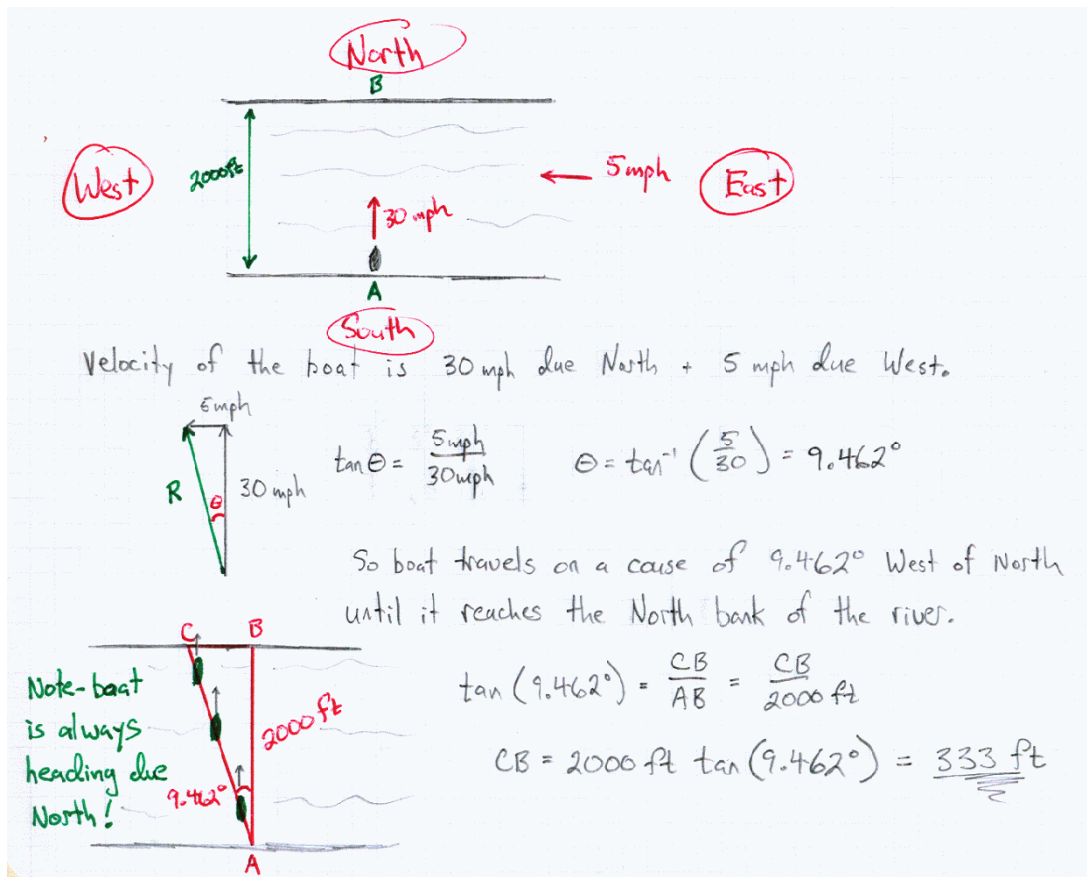 North
B
West
2000ft
5mph
East
30 mph
A
South
Velocity of the boat is 30 mph due North + 5 mph due West.
5mph
R
θ
30 mph
tan θ = 5mph / 30mph
θ = tan⁻¹ (5/30) = 9.462°
So boat travels on a couse of 9.462° West of North
until it reaches the North bank of the river.
C
B
Note-boat
is always
heading due
North!
2000 ft
9.462°
A
tan (9.462°) = CB / AB = CB / 2000 ft
CB = 2000 ft tan (9.462°) = 333 ft